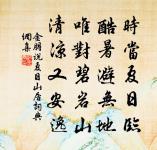 時當夏日臨
酷暑避無地
唯對碧岩山
清涼又安逸
金朋說夏日山居詞典
網集